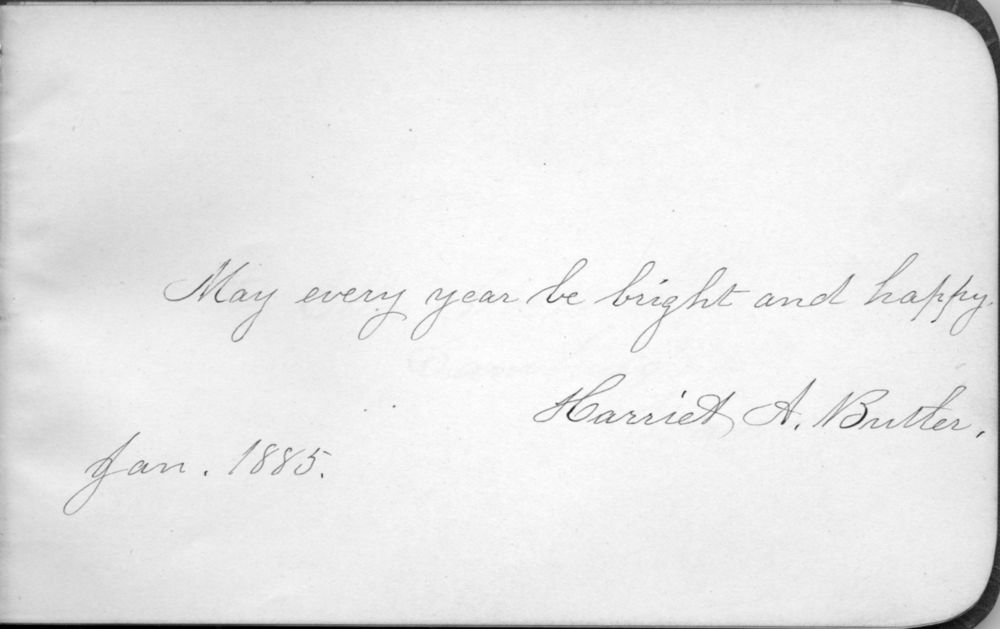 May every year be bright and happy.
Harriet A. Butler.
Jan. 1885.